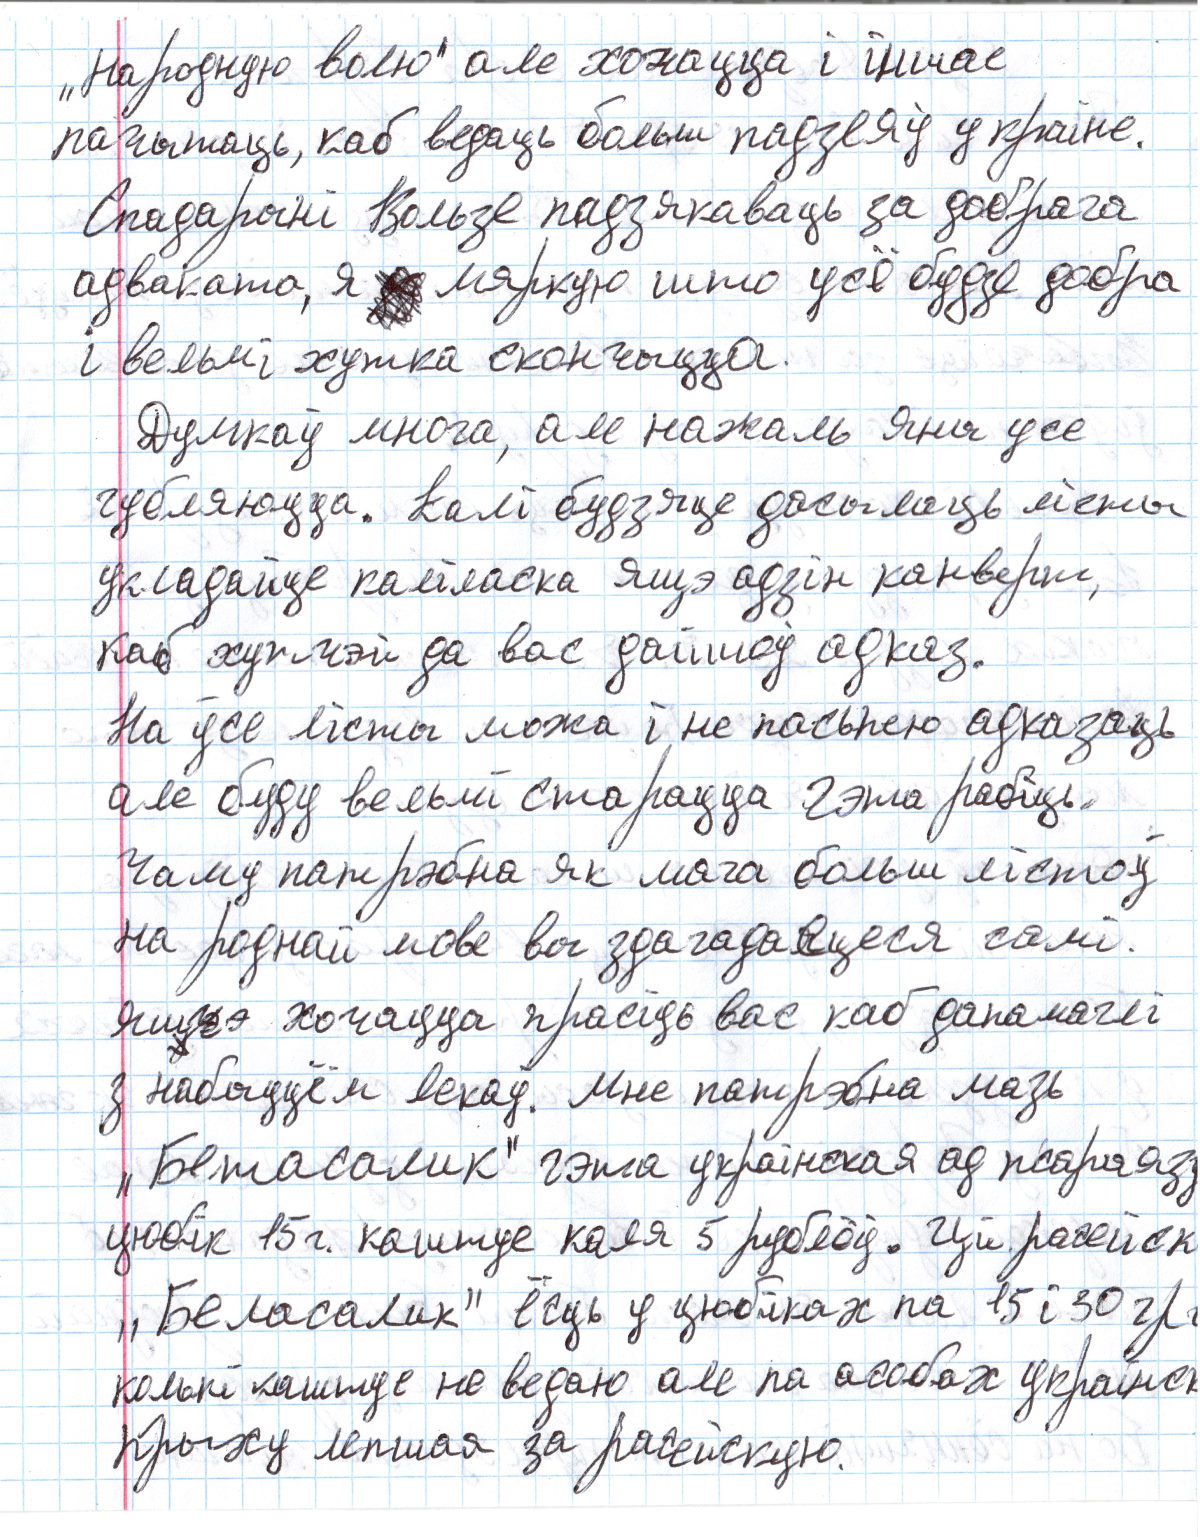 „Народную волю" але хочацца і іншае
пачытаць, каб ведаць больш падзеяў у краіне.
Спадарыні Вользе падзякаваць за добрага
адваката, я мяркую што усё будзе добра
і вельмі хутка скончыцца.
Думкаў многа, але нажаль яны усе
губляюцца. Калі будзяце дасылаць лісты
укладайце каліласка яшчэ адзін канверт,
каб хутчэй да вас дайшоў адказ.
На ўсе лісты можа і не пасьпею адказаць
але буду вельмі старацца гэта рабіць.
Чаму патрэбна як мага больш лістоў
на роднай мове вы здагадаецеся самі.
яшчэ хочацца прасіць вас каб дапамаглі
з набыццём лекаў. Мне патрэбна мазь
„Бетасалик" гэта украінская ад псарыязу
цюбік 15г. каштуе каля 5 рублёў. Ці расейск
„Беласалик" ёсць у цюбіках па 15 і 30 гр
колькі каштуе не ведаю але па асобах украінск
крыху лепшая за расейскую.